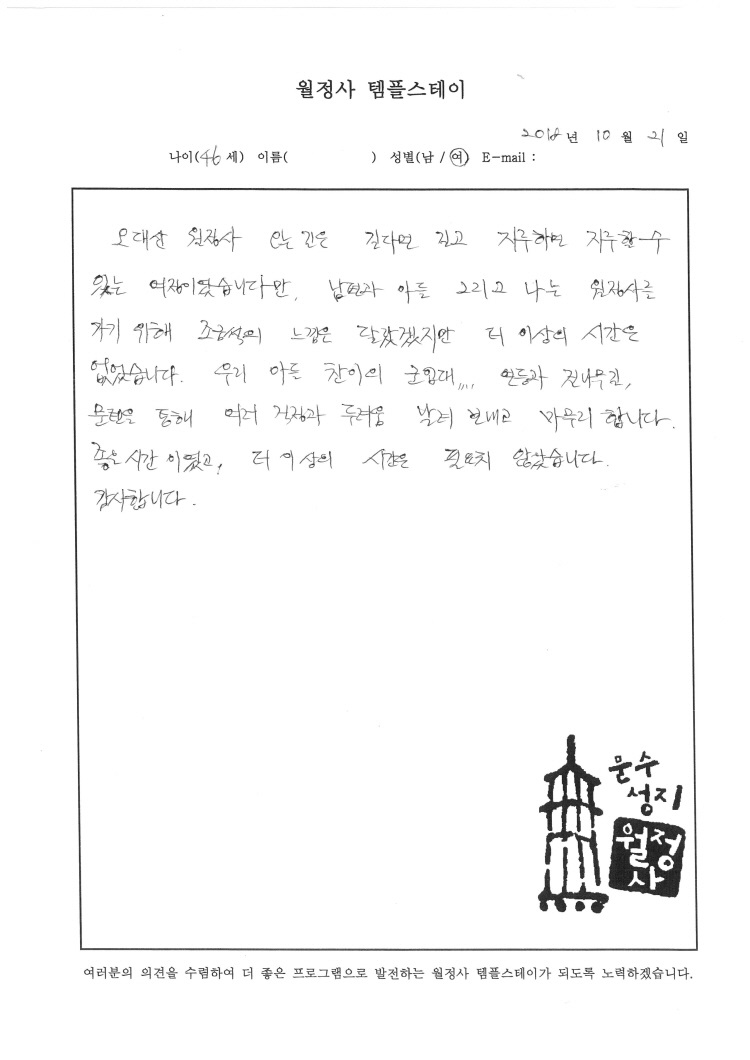 월정사 템플스테이
2018년 10월 21일
나이(46세) 이름( ) 성별(남 / 여) E-mail :
오대산 월정사 오는 길은 길다면 길고 지루하면 지루할 수
있는 여정이였습니다만, 남편과 아들 그리고 나는 월정사를
가기 위해 느낌은 달랐겠지만 더 이상의 시간은
없었습니다. 우리 아들 찬이의 군입대,,,, 연등과 전나무길,
통해 여러 걱정과 두려움 날려 보내고 마무리 합니다.
좋은 시간 이였고, 더 이상의 시간은 필요치 않았습니다.
감사합니다.
문수
성지
월정
사
여러분의 의견을 수렴하여 더 좋은 프로그램으로 발전하는 월정사 템플스테이가 되도록 노력하겠습니다.